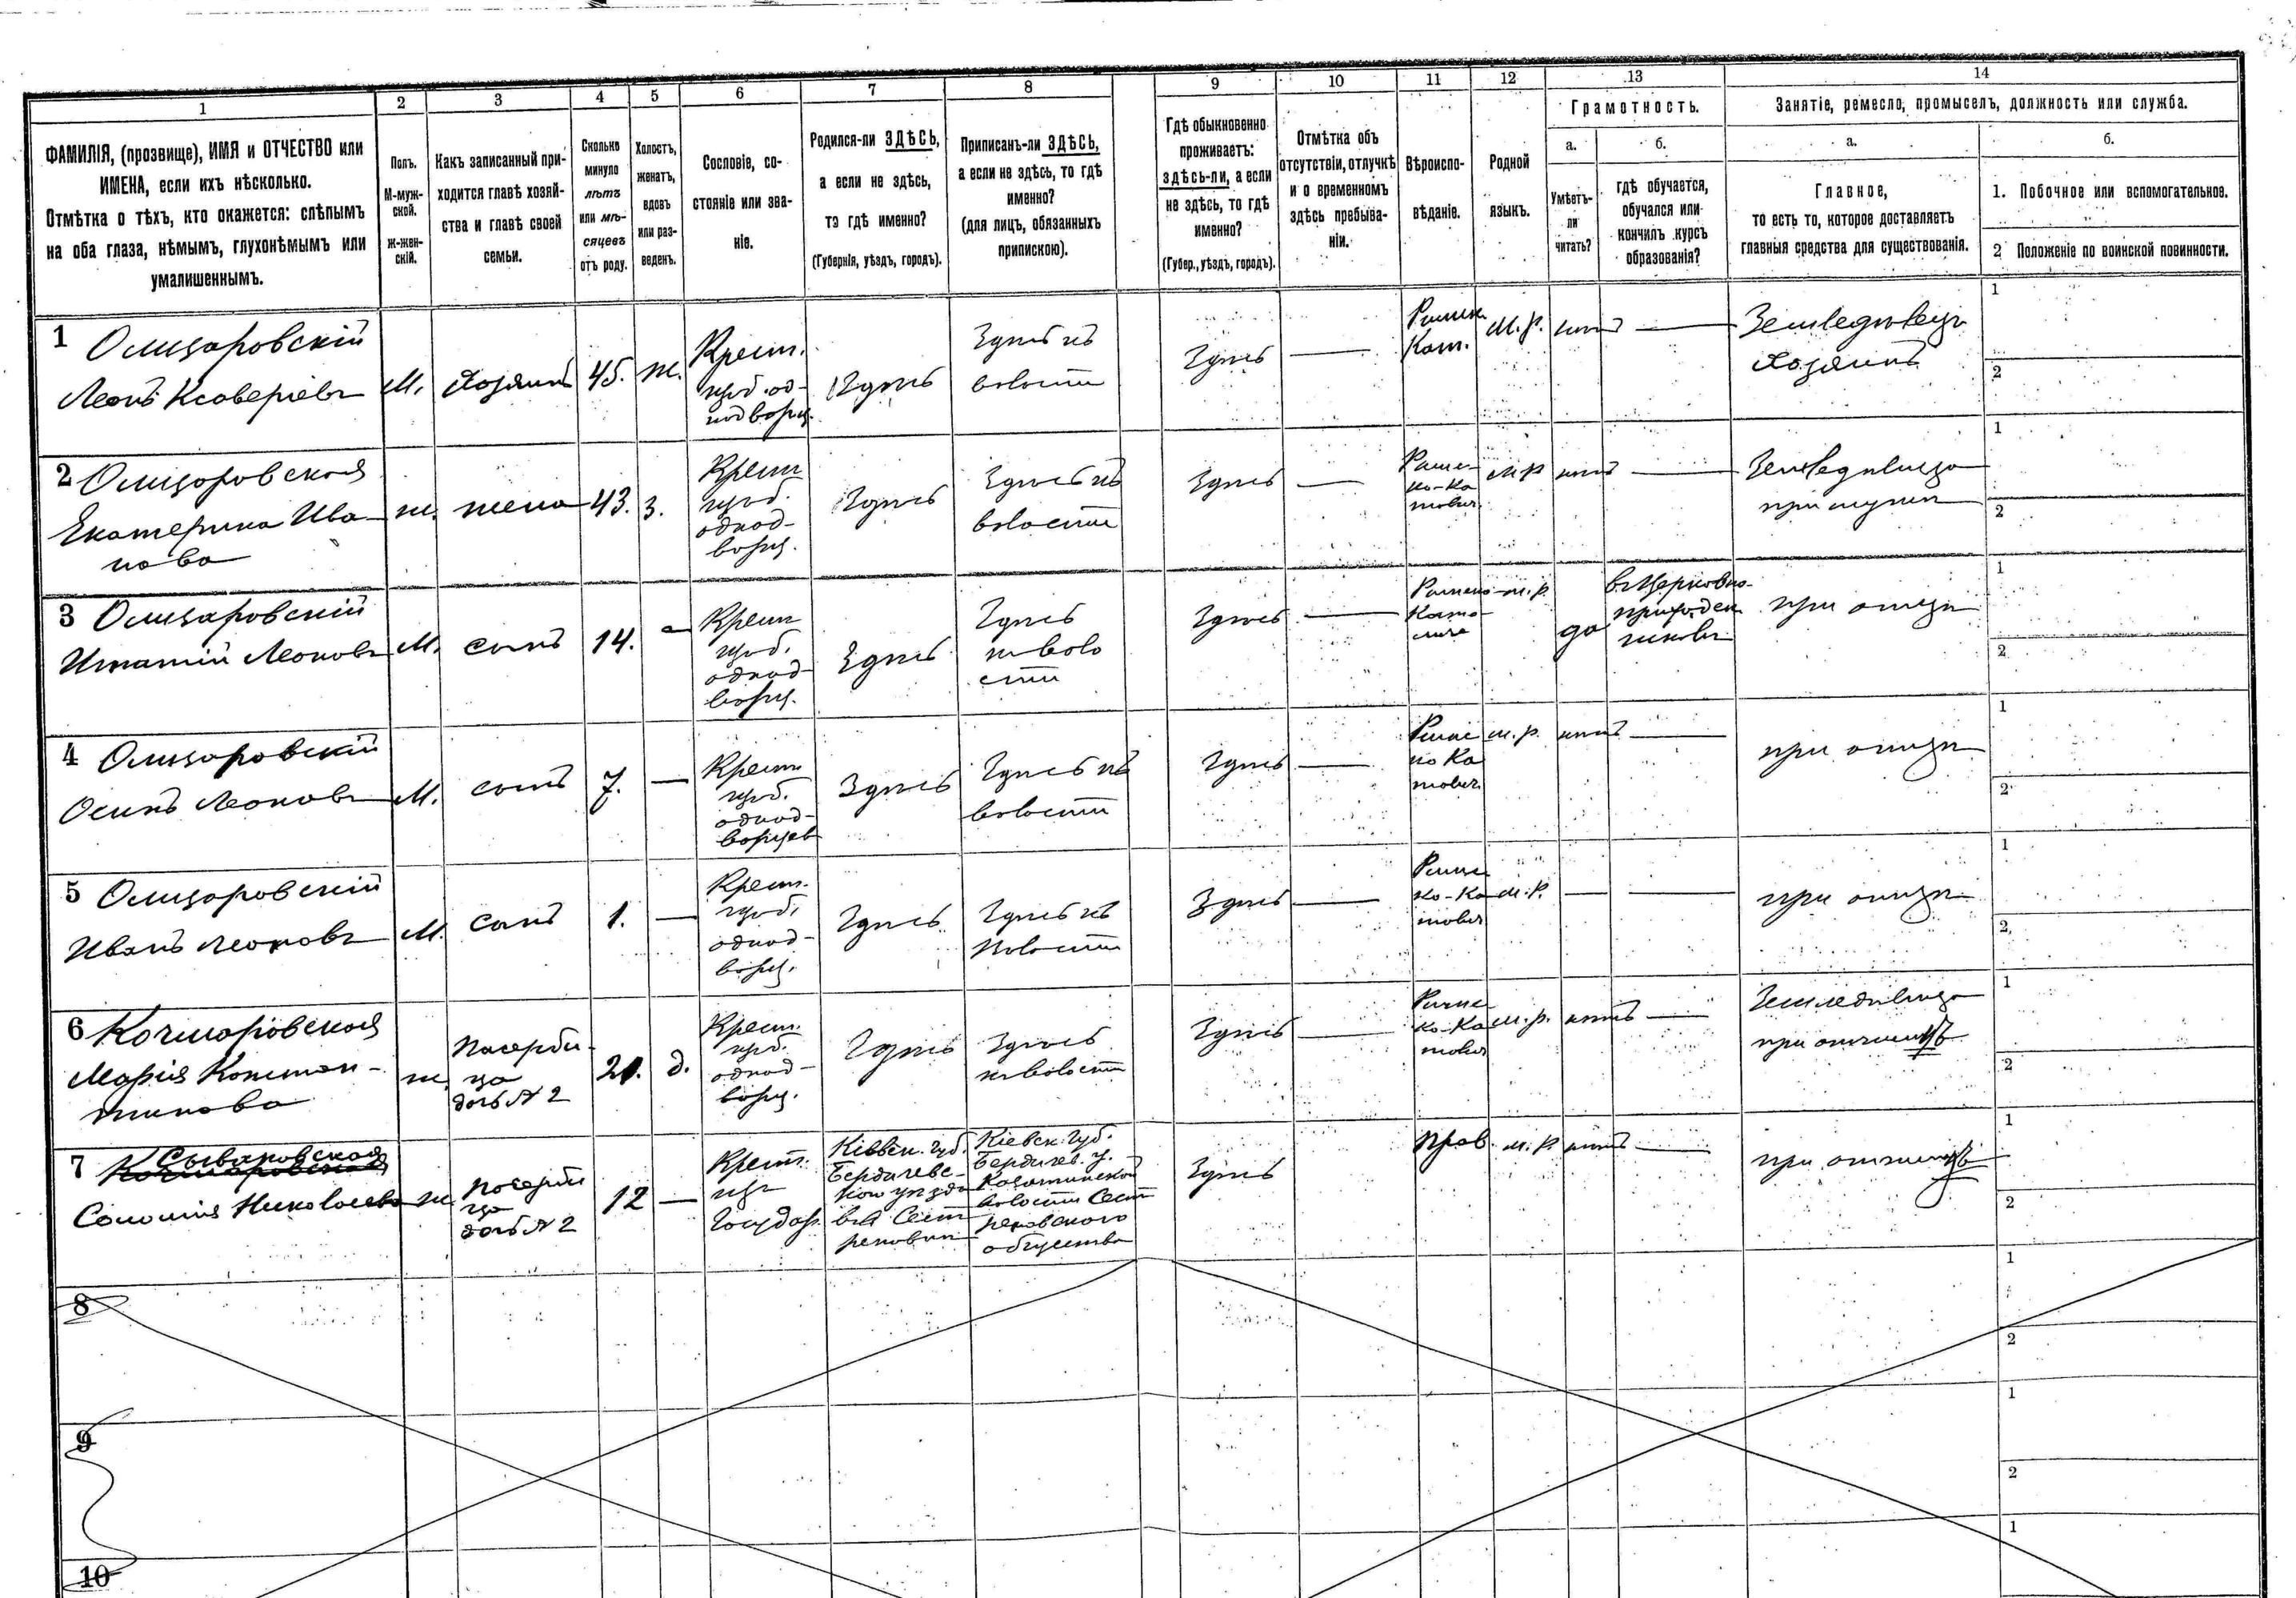 1
2
3
4
5
6
7
8
9
10
11
12
13
14
ФАМИЛІЯ, (прозвище), ИМЯ и ОТЧЕСТВО или
ИМЕНА, если ихъ нѣсколько.
Отмѣтка о тѣхъ, кто окажется: слѣпымъ
на оба глаза, нѣмымъ, глухонѣмымъ или
умалишеннымъ.
Полъ.
М-муж-
ской.
Ж-жен-
скій.
Какъ записанный при-
ходится главѣ хозяй-
ства и главѣ своей
семьи.
Сколько
минуло
лѣтъ
или мѣ-
сяцевъ
отъ роду.
Холостъ,
женатъ,
вдовъ
или раз-
веденъ.
Сословіе, со-
стояніе или зва-
ніе.
Родился-ли ЗДѢСЬ,
а если не здѣсь,
тэ гдѣ именно?
(Губернія, уѣздъ, городъ).
Приписанъ-ли ЗДѢСЬ,
а если не здѣсь, то гдѣ
именно?
(для лицъ, обязанныхъ
припискою).
Гдѣ обыкновенно
проживаетъ:
здѣсь-ли, а если
не здѣсь, то гдѣ
именно?
(Губер., уѣздъ, городъ).
Отмѣтка объ
отсутствіи, отлучкѣ
и о временномъ
здѣсь пребыва-
ніи.
Вѣроиспо-
вѣданіе.
Родной
языкъ.
Грамотность.
а.
Умѣетъ-
ли
читать?
б.
гдѣ обучается,
обучался или
кончилъ курсъ
образованія?
Занятіе, ремесло, промыселъ, должность или служба.
а.
Главное,
то есть то, которое доставляетъ
главныя средства для существованія.
б.
1. Побочное или вспомогательное.
2 Положеніе по воинской повинности.
1
Леонъ Ксаверіевъ
М.
хозяинъ
45.
ж.
Крест.
Здѣсь
Здѣсь къ
волости
Здѣсь
—
Кат.
м.р.
нѣтъ
—
Земледѣлецъ
хозяинъ
1
2
2
Екатерина Ива-
нова
ж.
жена
43.
з.
Крест
однод-
ворц.
Здѣсь
Здѣсь къ
волости
Здѣсь
—
м.р
нѣтъ
—
1
2
3
Игнатій Леоновъ
М.
сынъ
14.
—
Крест
однод-
ворц.
Здѣсь
Здѣсь
къ воло
сти
Здѣсь
—
м.р.
да
въ Церковно-
приходск.
школѣ
при отцѣ
1
2
4
Осипъ Леоновъ
М.
сынъ
7.
—
Крест
однод-
ворцев
Здѣсь
Здѣсь къ
волости
Здѣсь
—
м.р.
нѣтъ
—
при отцѣ
1
2
5
Иванъ Леоновъ
М.
сынъ
1.
—
Крест.
однод-
ворц.
Здѣсь
Здѣсь къ
волости
Здѣсь
—
м.р.
—
—
при отцѣ
1
2
6 Кочмаровская
Марія Констан-
тинова
ж.
пасерби-
ца
дочь № 2
д.
Крест.
однод-
ворц.
Здѣсь
Здѣсь
къ волости
Здѣсь
—
м.р.
нѣтъ
—
при отчимѣ
1
2
7
Соломія Николаева
ж
пасерби
ца
дочь № 2
12
—
Крест.
изъ
Государ.
Кіевск. губ.
Бердичевс-
кой уѣзда
Кіевск. губ.
Бердичев. у.
волости
общества
Здѣсь
прав.
м.р
нѣтъ
—
при отчимѣ
1
2
8
1
2
9
1
2
10
1